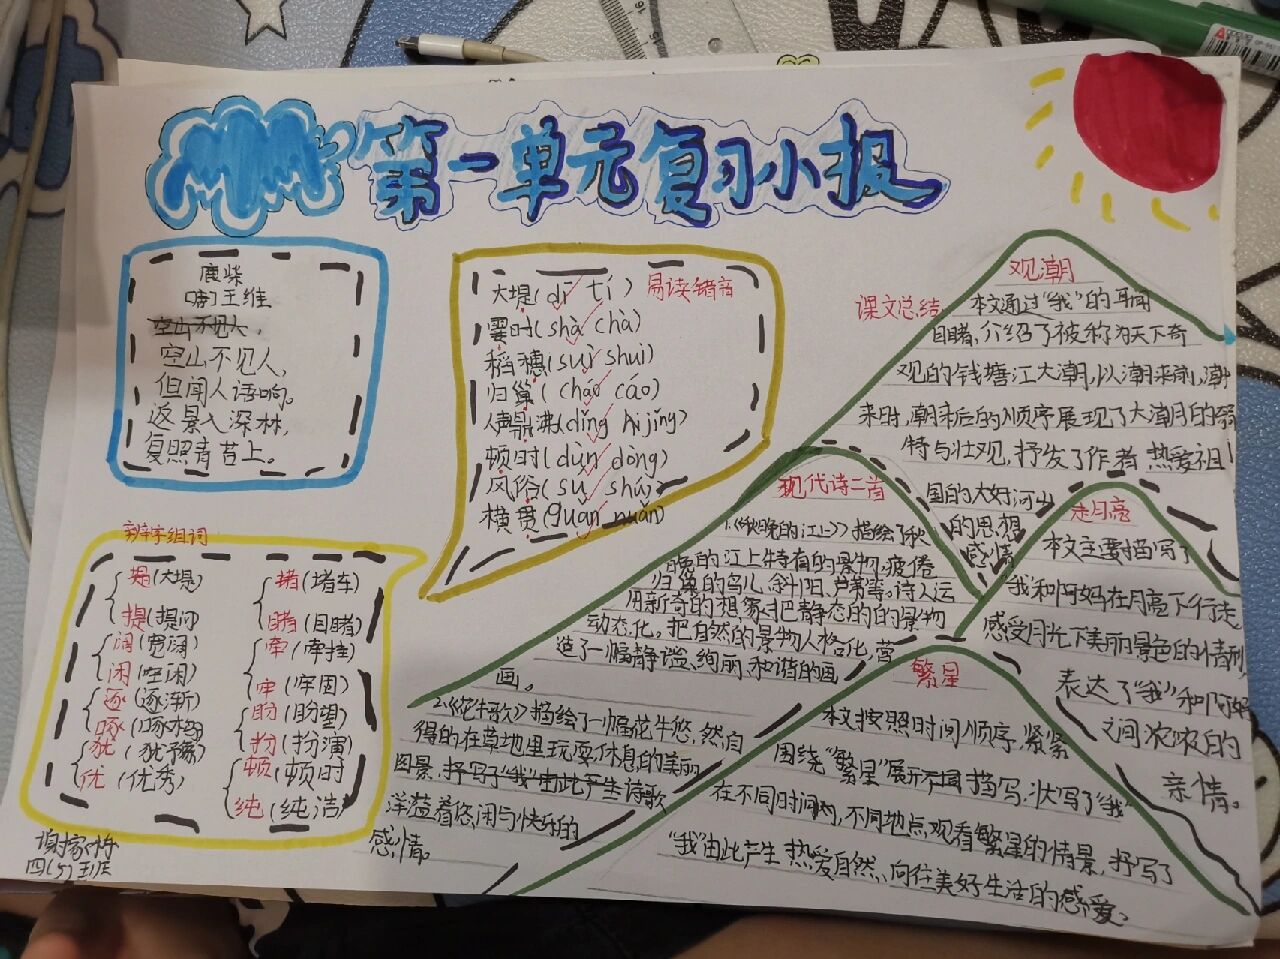 第一单元复习小报
鹿柴
王维
空山不见人，
空山不见人，
但闻人语响。
返景入深林，
复照青苔上。
易读错音
大堤(dī tí)
霎时(shà chà)
稻穗(suì shuì)
归巢(cháo cáo)
人声鼎沸(dǐng hijǐng)
顿时(dùn dòng)
风俗(sú shú)
横贯(guàn nuán)
辨字组词
堤(大堤)
提(提问)
阔(宽阔)
闲(空闲)
逐(逐渐)
啄(啄
犹(犹豫)
优(优秀)
堵(堵车)
睹(目睹)
牵(牵挂)
牢(牢固)
盼(盼望)
扮(扮演)
顿(顿时
纯(纯洁)
四(5)班
课文总结
观潮
本文通过"我"的耳闻
目睹，介绍了被称为天下奇
观的钱塘江大潮，以潮来前、潮
来时，潮来后的顺序展现了大潮的
特与壮观，抒发了作者热爱祖
国的大好河山
的思想
感情
现代诗二首
1.《秋晚的江上》描绘了秋
晚的江上特有的景物，疲倦
归巢的鸟儿、斜阳、芦苇等。诗人运
用新奇的想象，把静态的的景物
动态化，把自然的景物人格化，营
造了一幅静谧、绚丽、和谐的画
画。
2.《花牛歌》描绘了一幅花牛悠，然，自
得的在草地里玩耍、休息的美丽
图景，抒写了"我"由此产生诗歌
洋溢着悠闲与快乐的
感情。
走月亮
本文主要描写了
"我"和阿妈在月亮下行走，
感受月光下美丽景色的情
表达了"我"和阿妈
之间浓浓的
亲情。
繁星
本文按照时间顺序，紧紧
围绕"繁星"展开描写，状写了"我"
在不同时间内，不同地点，观看繁星的情景，抒写了
"我"由此产生热爱自然、向往美好生活的感爱。